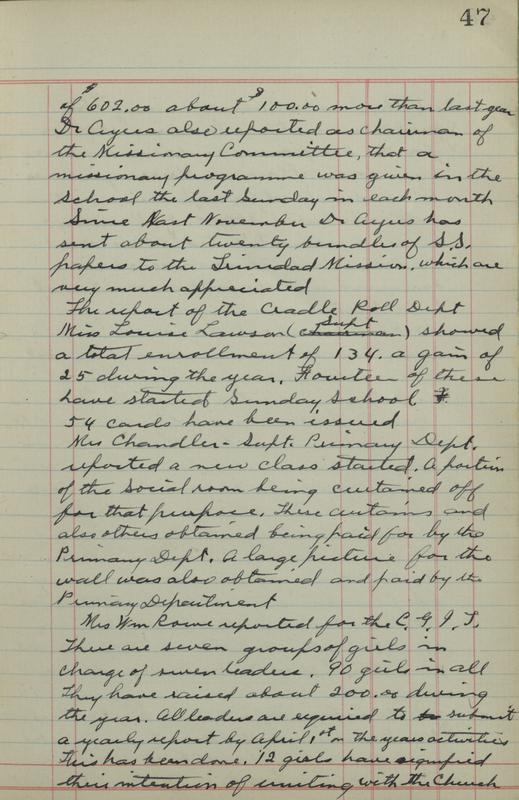 47
of $602.00 about $100.00 more than last year
Dr Ayers also reported as chairman of
the Missionary Committee, that a
missionary programme was given in the
school the last Sunday in each month
Since last November Dr Ayers has
sent about twenty bundles of S.S.
papers to the Trinidad Mission, which are
very much appreciated
The report of the Cradle Roll Dept
Supt
Miss Louise Lawson (chairman) showed
a total enrollment of 134. a gain of
25 during the year. Fourteen of these
have started Sunday School.
54 cards have been issued
Mrs Chandler - Supt. Primary Dept.
reported a new class started. A portion
of the social room being curtained off
for that purpose. These curtains and
also others obtained being paid for by the
Primary Dept. A large picture for the
wall was also obtained and paid by the
Primary Department
Mrs Wm Rowe reported for the C. G. I. T.
There are seven groups of girls in
charge of seven leaders. 90 girls in all
They have raised about 200.00 during
the year. All leaders are required to submit
a yearly report by April 1st on the years activities
This has been done. 12 girls have signified
their intention of uniting with the Church